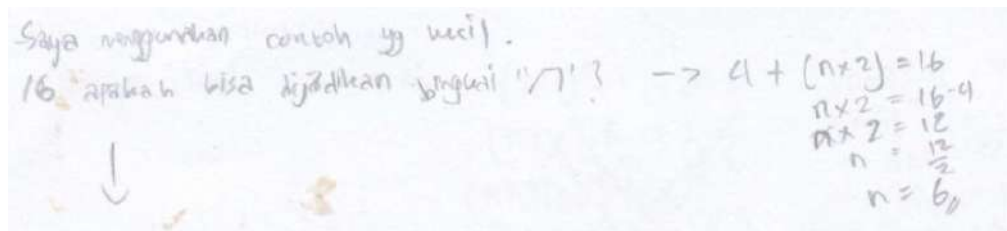 Saya menggunakan contoh yg kecil.
16 apakah bisa dijadikan bingkai "/7"? -> 4 + (n×2) = 16
n×2 = 16-4
n×2 = 12
n = 12/2
n = 6//